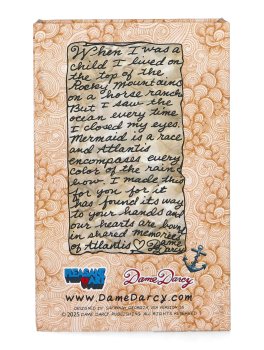 When I was a
child I lived on
the top of the
Rocky Mountains
on a horse ranch
But I saw the
ocean every time
I closed my eyes.
Mermaid is a race
and Atlantis
encompasses every
color of the rain
bow. I made this
for you, for it
has found its way
to your hands and
our hearts are bound
in shared memories
of Atlantis ♡ Dame
Darcy
Dame Darcy
www.DameDarcy.com
© 2025 DAME DARCY PUBLISHING ALL RIGHTS RESERVED